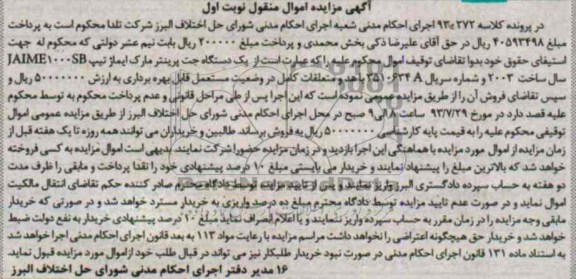 آگهی مزایده اموال منقول نوبت اول
در پرونده کلاسه ۲۷۲ـ۹۳ اجرای احکام مدنی شعبه اجرای احکام مدنی شورای حل اختلاف البرز شرکت تلدا محکوم است به پرداخت
مبلغ ۴۰۵۹۳۴۹۸ ریال در حق آقای علیرضا ذکی بخش محمدی و پرداخت مبلغ ۲۰۰۰۰۰ ریال بابت نیم عشر دولتی که محکوم له جهت
استیفای حقوق خود بدوا تقاضای توقیف اموال محکوم علیه را که عبارت است از یک دستگاه جت پرینتر مارک ایماژ تیپ JAIME۱۰۰۰SB
سال ساخت ۲۰۰۳ و شماره سریال ۳۵۱۰۶۳۴A با هد و متعلقات کامل در وضعیت مستعمل قابل بهره برداری به ارزش ۵۰۰۰۰۰۰۰ ریال و
سپس تقاضای فروش آن را از طریق مزایده عمومی نموده است که این اجرا پس از طی مراحل قانونی و عدم پرداخت محکوم به توسط محکوم
علیه قصد دارد در مورخ ۹۳/۷/۲۹ ساعت ۸ الی ۹ صبح در محل اجرای احکام مدنی شورای حل اختلاف البرز از طریق مزایده عمومی اموال
توقیفی محکوم علیه را به قیمت پایه کارشناسی ۵۰۰۰۰۰۰۰ ریال به فروش برساند. طالبین و خریداران می توانند همه روزه تا یک هفته قبل از
زمان مزایده از اموال مورد مزایده با هماهنگی این اجرا بازدید و در زمان مزایده حضورا شرکت نمایند. بدیهی است اموال مزایده به کسی فروخته
خواهد شد که بالاترین مبلغ را پیشنهاد نمایند و خریدار می بایستی مبلغ ۱۰ درصد پیشنهادی خود را نقدا پرداخت و مابقی را ظرف مدت
دو هفته به حساب سپرده دادگستری البرز واریز نمایند و پس از تایید مزایده توسط دادگاه محترم صادر کننده حکم تقاضای انتقال مالکیت
اموال نماید و در صورت عدم تایید مزایده توسط دادگاه محترم مبلغ ده درصد واریزی به خریدار مسترد خواهد شد و در صورتی که خریدار
مابقی وجه مزایده را در زمان مقرر به حساب سپرده واریز ننمایند و یا اعلام انصراف نماید مبلغ ۱۰ درصد پیشنهادی خریدار به نفع دولت ضبط
خواهد شد و خریدار حق هیچگونه اعتراضی را نخواهد داشت مراسم مزایده با رعایت مواد ۱۱۳ به بعد قانون اجرای احکام مدنی اجرا خواهد شد
به استناد ماده ۱۳۱ قانون اجرای احکام مدنی در صورت نبود خریدار طلبکار نیز می تواند در قبال طلب خود از اموال مورد مزایده قبول نماید.
۱۶ مدیر دفتر اجرای احکام مدنی شورای حل اختلاف البرز